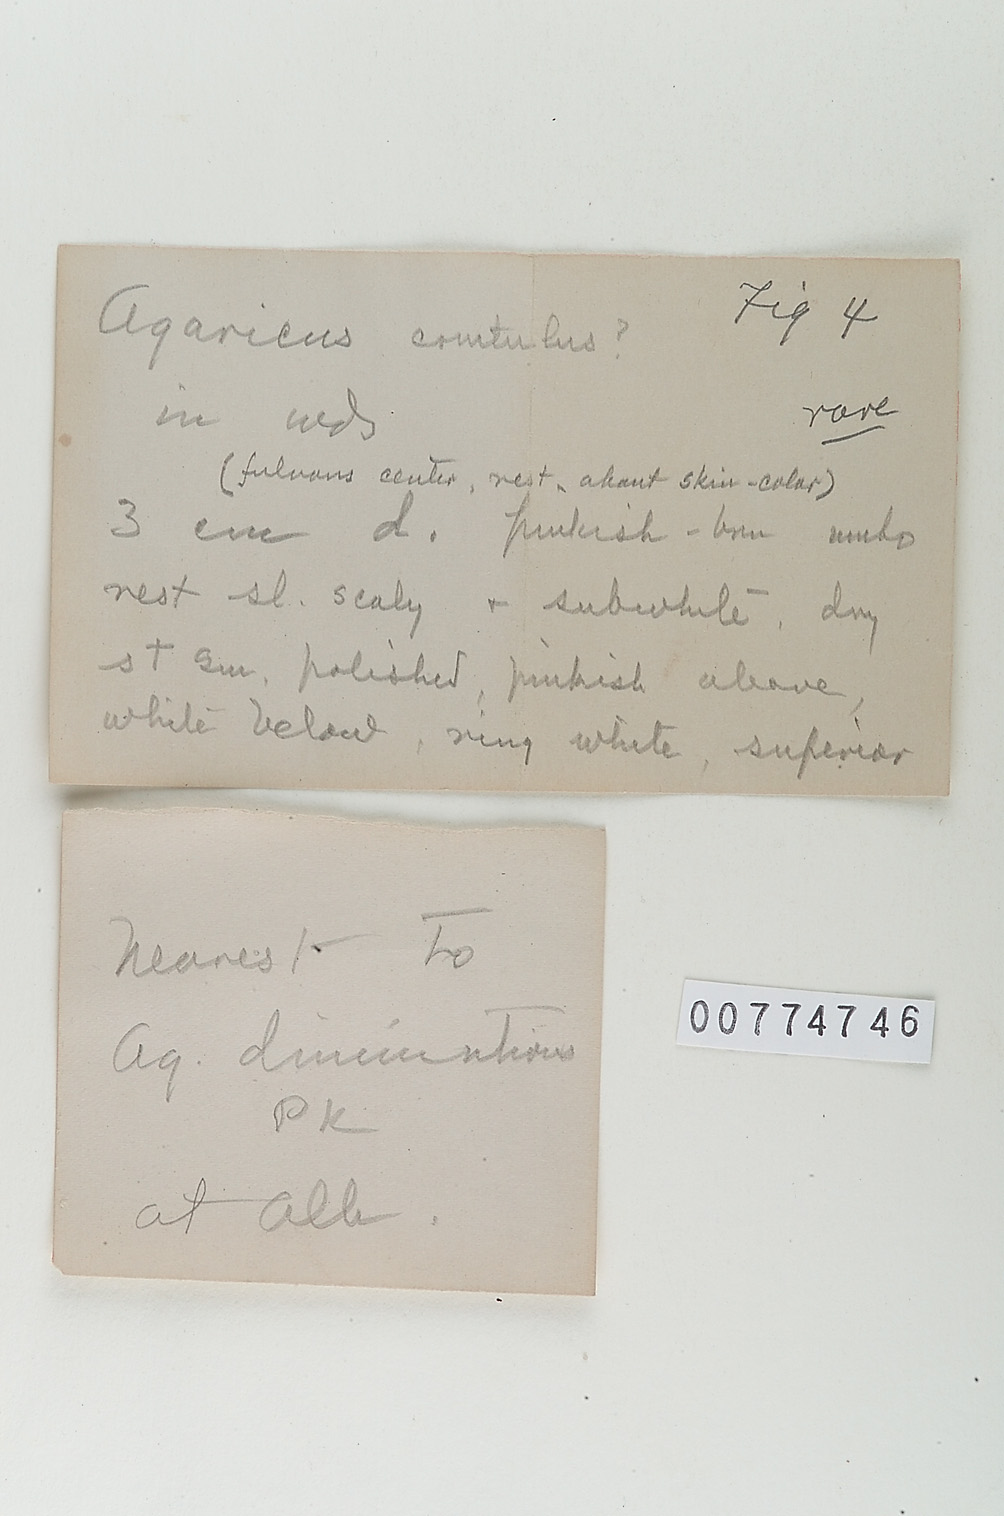 Agaricus comtulus? Fig 4
in wds rare
(fulvous center, rest about skin-color)
3 cm d. pinkish-brn umbo
rest sl. scaly + subwhite, dry
st 3 cm, polished, pinkish above,
white below, ring white, superior
Nearest to
Ag. diminutivus
PK
at Alb.
00774746